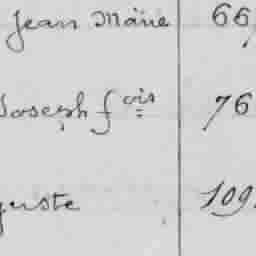 Jean Marie 66
Joseph fois 76
guste 109